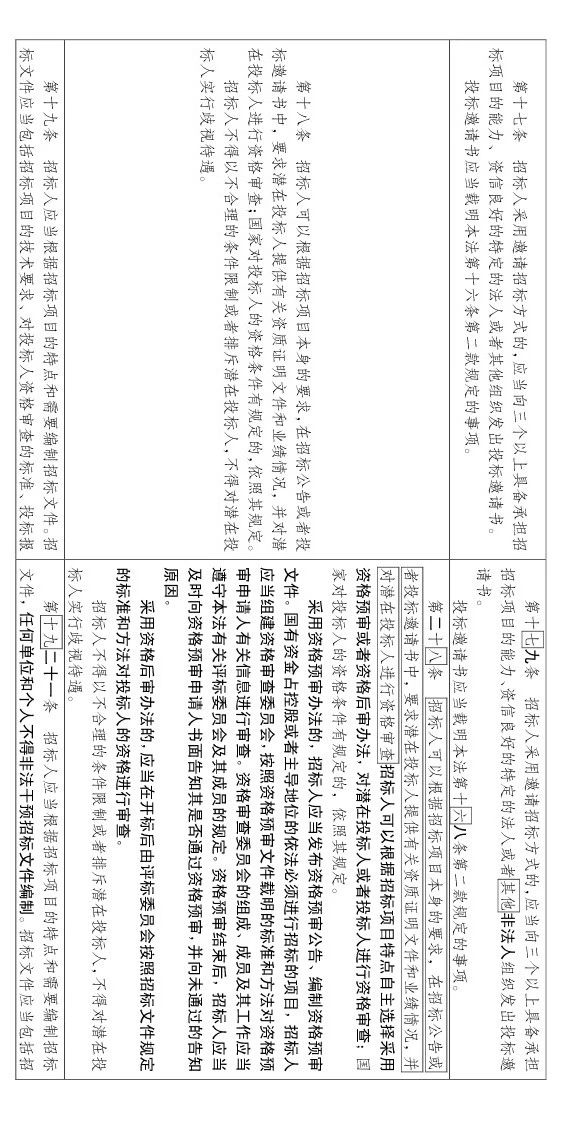 第十七条　招标人采用邀请招标方式的，应当向三个以上具备承担招
标项目的能力、资信良好的特定的法人或者其他组织发出投标邀请书。
投标邀请书应当载明本法第十六条第二款规定的事项。
第十七九条　招标人采用邀请招标方式的，应当向三个以上具备承担
招标项目的能力、资信良好的特定的法人或者其他非法人组织发出投标邀
请书。
投标邀请书应当载明本法第十六八条第二款规定的事项。
第十八条　招标人可以根据招标项目本身的要求，在招标公告或者投
标邀请书中，要求潜在投标人提供有关资质证明文件和业绩情况，并对潜
在投标人进行资格审查；国家对投标人的资格条件有规定的，依照其规定。
招标人不得以不合理的条件限制或者排斥潜在投标人，不得对潜在投
标人实行歧视待遇。
第二十八条　招标人可以根据招标项目本身的要求，在招标公告或
者投标邀请书中，要求潜在投标人提供有关资质证明文件和业绩情况，并
对潜在投标人进行资格审查招标人可以根据招标项目特点自主选择采用
资格预审或者资格后审办法，对潜在投标人或者投标人进行资格审查；国
家对投标人的资格条件有规定的，依照其规定。
采用资格预审办法的，招标人应当发布资格预审公告、编制资格预审
文件。国有资金占控股或者主导地位的依法必须进行招标的项目，招标人
应当组建资格审查委员会，按照资格预审文件载明的标准和方法对资格预
审申请人有关信息进行审查。资格审查委员会的组成、成员及其工作应当
遵守本法有关评标委员会及其成员的规定。资格预审结束后，招标人应当
及时向资格预审申请人书面告知其是否通过资格预审，并向未通过的告知
原因。
采用资格后审办法的，应当在开标后由评标委员会按照招标文件规定
的标准和方法对投标人的资格进行审查。
招标人不得以不合理的条件限制或者排斥潜在投标人，不得对潜在投
标人实行歧视待遇。
第十九条　招标人应当根据招标项目的特点和需要编制招标文件。招
标文件应当包括招标项目的技术要求、对投标人资格审查的标准、投标报
第十九二十一条　招标人应当根据招标项目的特点和需要编制招标
文件，任何单位和个人不得非法干预招标文件编制。招标文件应当包括招